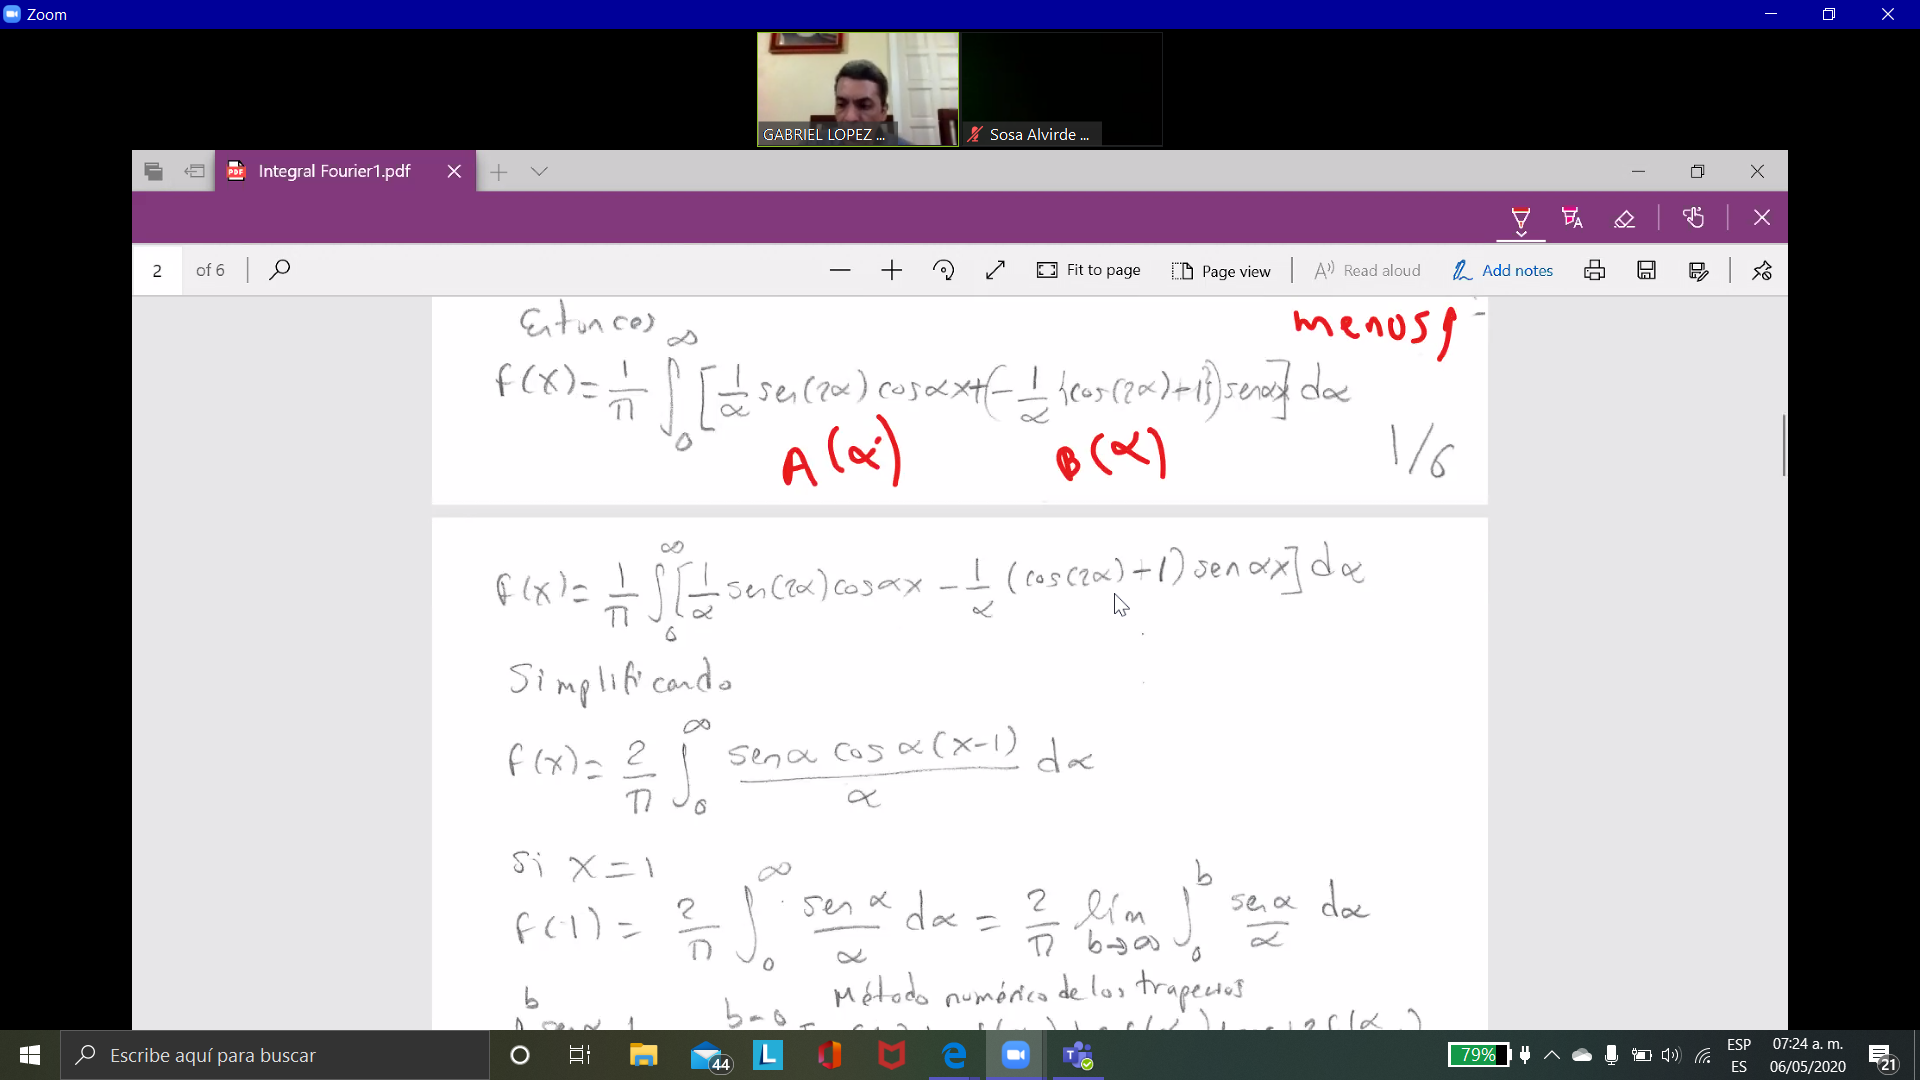 Zoom
GABRIEL LOPEZ ...
Sosa Alvirde ...
Integral Fourier1.pdf
2 of 6
Fit to page
Page view
Read aloud
Add notes
Entonces
menos
f(x) = 1/π ∫₀^∞ [1/α sen(2α) cos αx + (-1/α {cos(2α)+1}) sen αx] dα
A(α) B(α)
1/6
f(x) = 1/π ∫₀^∞ [1/α sen(2α) cos αx - 1/α (cos(2α)+1) sen αx] dα
Simplificando
f(x) = 2/π ∫₀^∞ sen α cos α(x-1) / α dα
Si x = 1
f(1) = 2/π ∫₀^∞ sen α / α dα = 2/π lím b→∞ ∫₀^b sen α / α dα
Método numérico de los trapecios
b b-0
Escribe aquí para buscar
44
79%
ESP
ES
07:24 a. m.
06/05/2020
21